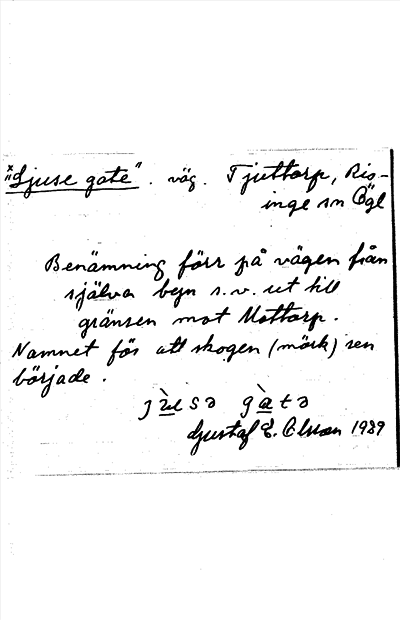 ˣ"Ljuse gate". väg. Tjuttorp, Ris-
inge sn Ögl
Benämning förr på vägen från
själva byn s.v. ut till
gränsen mot Mottorp.
Namnet fös att skogen (mörk) sen
började.
Gustaf E. Olsson 1989